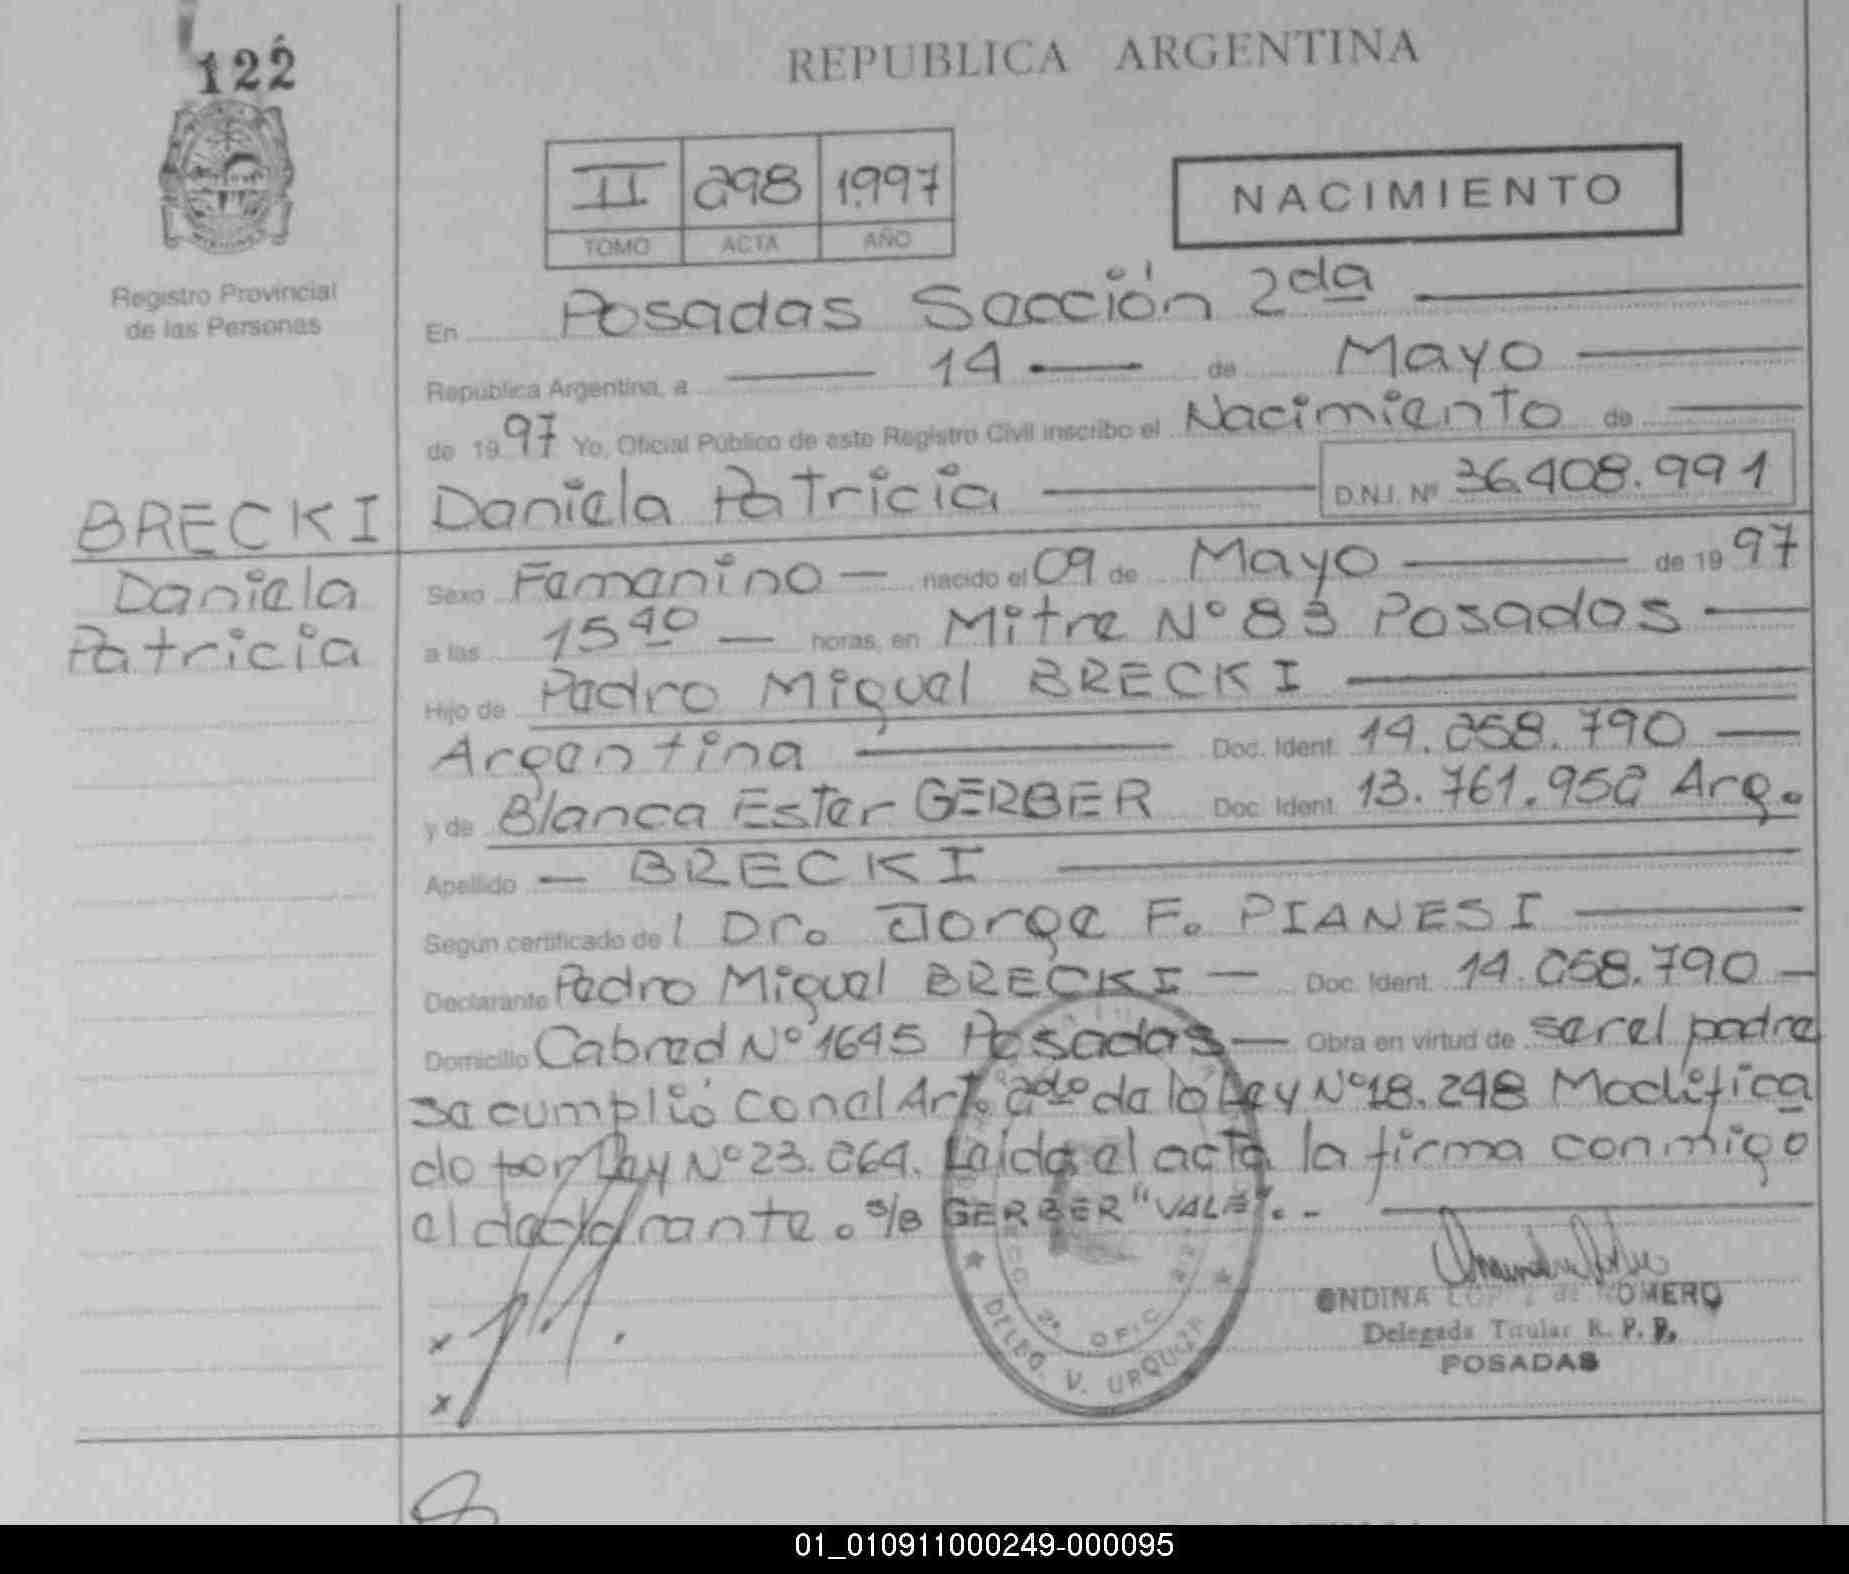 122
REPUBLICA ARGENTINA
II 298 1.997
TOMO ACTA AÑO
NACIMIENTO
Registro Provincial
de las Personas
En Posadas Sección 2da
República Argentina, a 14 de Mayo
de 1997 Yo, Oficial Público de este Registro Civil inscribo el Nacimiento de
Daniela Patricia D.N.I. Nº 36.408.991
BRECKI
Daniela
Patricia
Sexo Femenino nacido el 09 de Mayo de 1997
a las 15 40 horas, en Mitre Nº 83 Posadas
Hijo de Pedro Miguel BRECKI
Argentina Doc. Ident. 14.258.790
y de Blanca Ester GERBER Doc. Ident. 13.761.952 Arg.
Apellido BRECKI
Según certificado del Dr. Jorge F. PIANESI
Declarante Pedro Miguel BRECKI Doc. Ident. 14.258.790
Domicilio Cabred Nº 1645 Posadas Obra en virtud de ser el padre
se cumplió con el Art. 2do de la Ley Nº 18.248 Modifica
do por Ley Nº 23.264. Leída el acta la firma conmigo
el declarante. s/b GERBER "VALE". -
ONDINA LOPEZ de ROMERO
Delegada Titular R. P. P.
POSADAS
2ª OFIC.
DELEG. V. URQUIZA
x
x
01_010911000249-000095